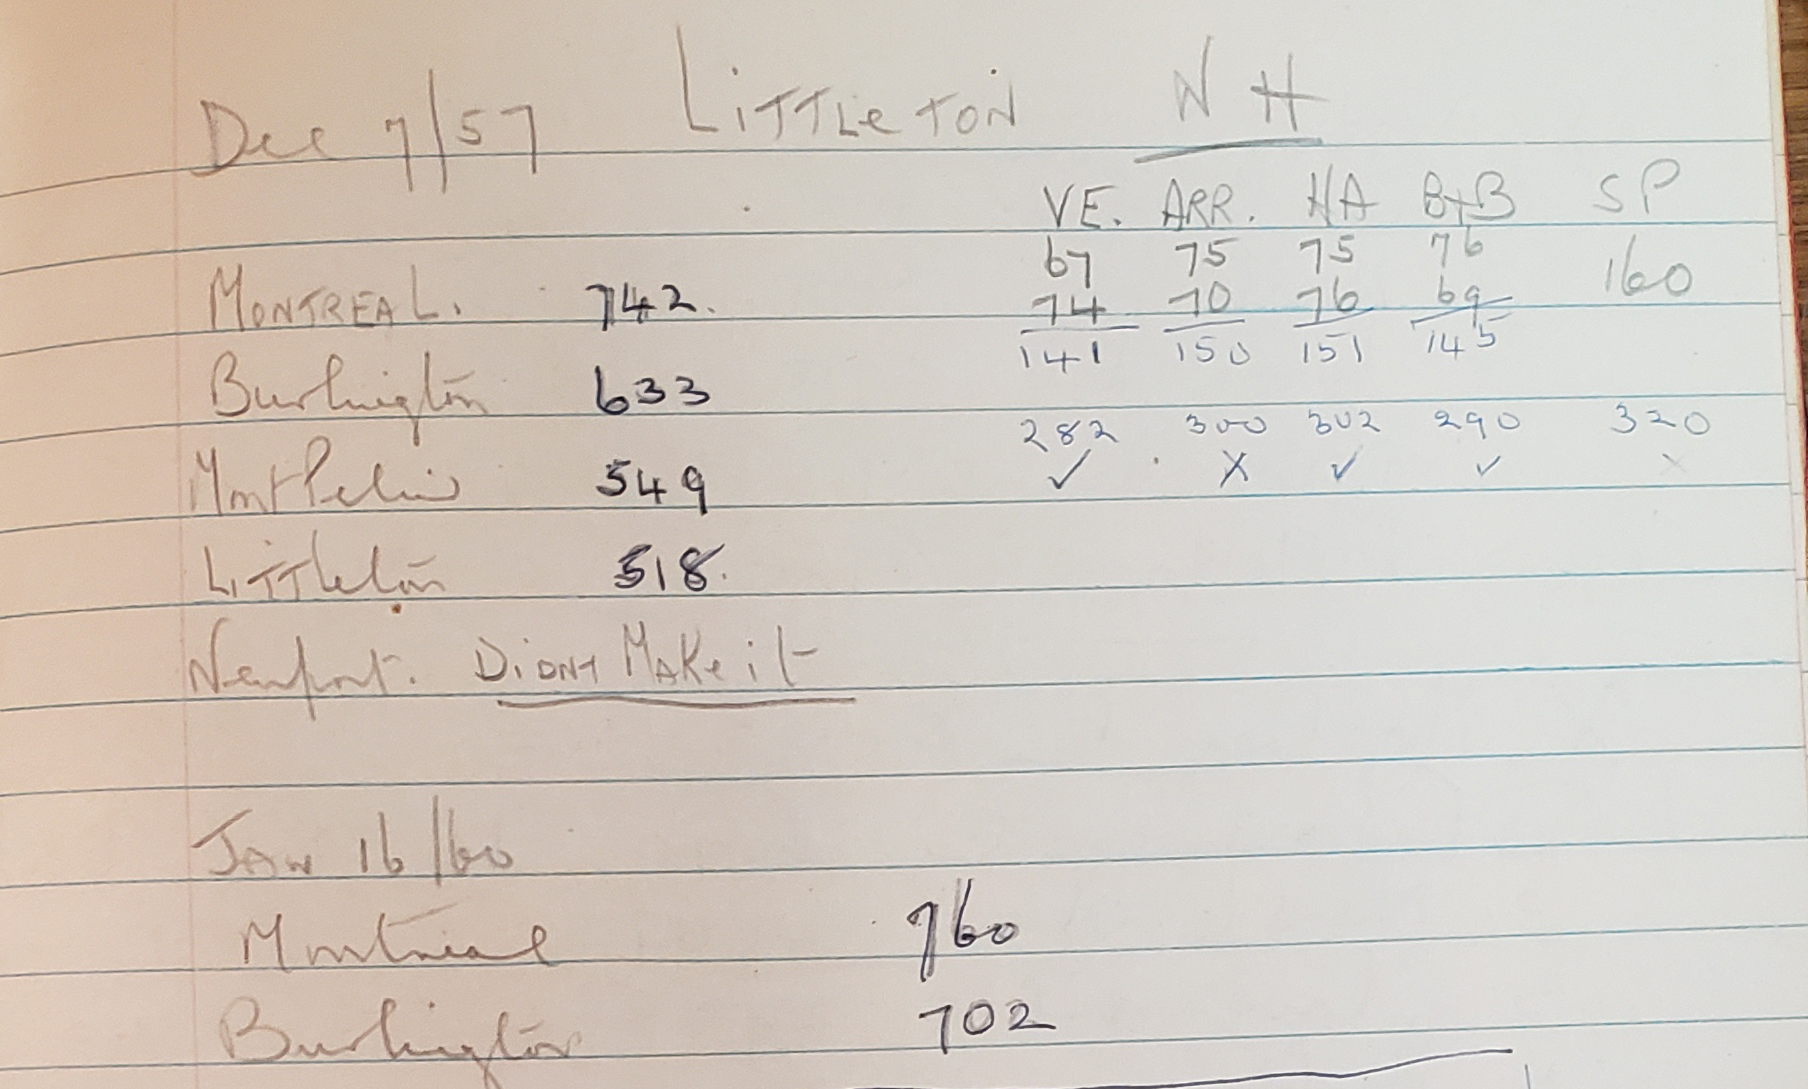 Dec 7/57 LiTTLeTON NH
VE. ARR. HA B+B SP
67 75 75 76
MONTREAL. 742. 74 70 76 69 160
141 150 151 145
Burlington 633
282 300 302 290 320
✓ X ✓ ✓ x
MontPelier 549
LiTTleton 518.
Newport. DiDNT MAKe it
JAN 16/60
Montreal 760
Burlington 702